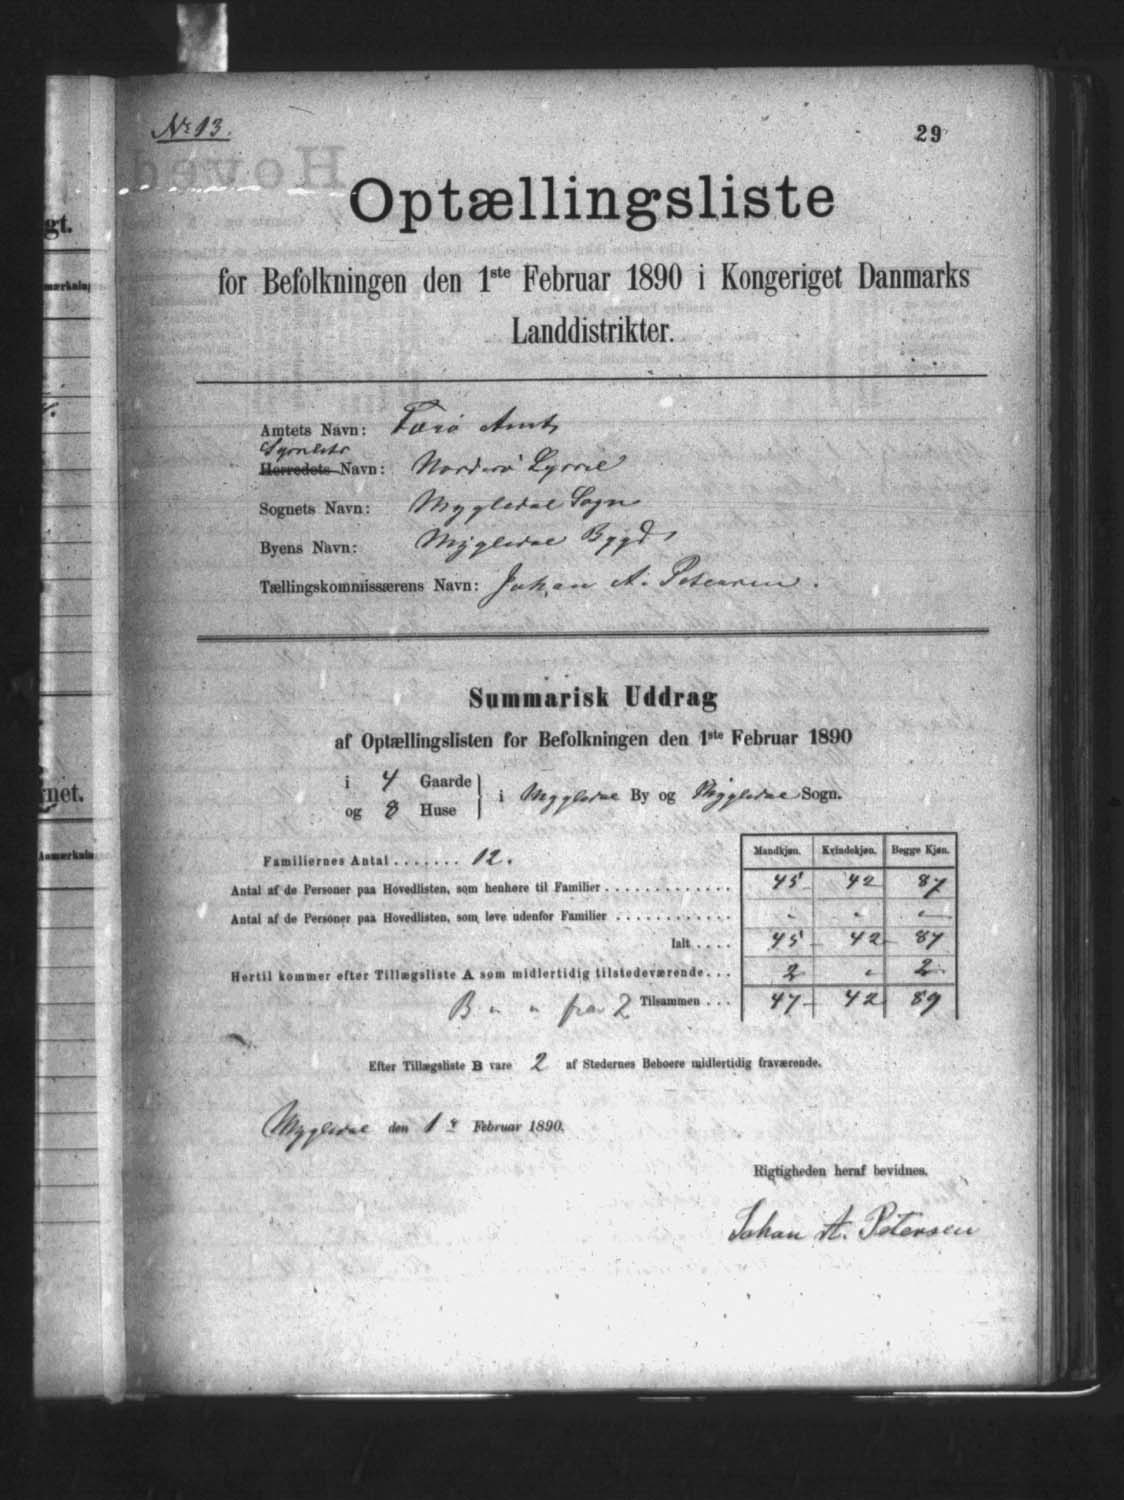 No 13.
29
Optællingsliste
for Befolkningen den 1ste Februar 1890 i Kongeriget Danmarks
Landdistrikter.
Amtets Navn: Færø Amt
Sysselets
Herredets Navn: Norderø Syssel
Sognets Navn: Mygledal Sogn
Byens Navn: Mygledal Bygd
Tællingskommissærens Navn: Johan A. Petersen.
Summarisk Uddrag
af Optællingslisten for Befolkningen den 1ste Februar 1890
i 4 Gaarde
og 8 Huse
i Mygledal By og Mygledal Sogn.
Mandkjøn. Kvindekjøn. Begge Kjøn.
Familiernes Antal ....... 12.
Antal af de Personer paa Hovedlisten, som henhøre til Familier ............. 45 42 87
Antal af de Personer paa Hovedlisten, som leve udenfor Familier ............ - - -
Ialt .... 45 42 87
Hertil kommer efter Tillægsliste A som midlertidig tilstedeværende... 2 - 2
B " " fra 2 Tilsammen ... 47 42 89
Efter Tillægsliste B vare 2 af Stedernes Beboere midlertidig fraværende.
Mygledal den 1 Februar 1890.
Rigtigheden heraf bevidnes.
Johan A. Petersen
gt.
mærkning
gnet.
Anmærkning
Hoved